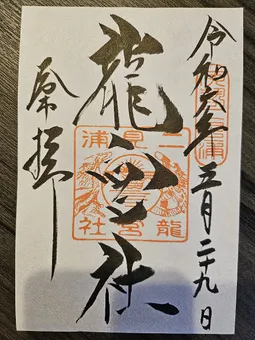 令和六年三月二十九日
二見浦
龍宮社
龍宮社
奉拝